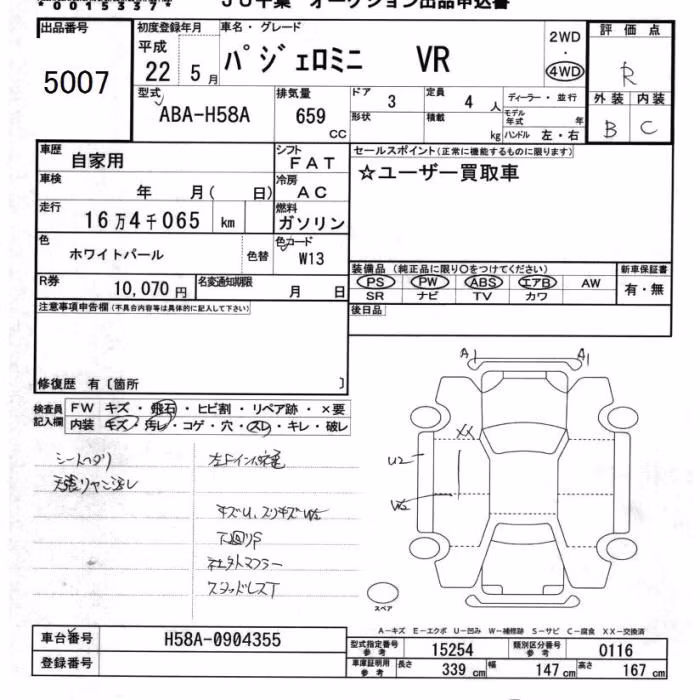 00153374 JU千葉 オークション出品申込書
出品番号 初度登録年月 車名・グレード 評価点
5007 平成 22 5月 パジェロミニ VR 2WD・4WD R
型式 ABA-H58A 排気量 659 CC ドア 3 定員 4 人 ディーラー・並行 外装 内装
形状 積載 kg モデル年式 年 ハンドル 左・右 B C
車歴 自家用 シフト FAT セールスポイント(正常に機能するものに限ります)
車検 年 月( 日) 冷房 AC ☆ユーザー買取車
走行 16万4千065 km 燃料 ガソリン
色 ホワイトパール 色替 色コード W13
装備品(純正品に限り○をつけてください) 新車保証書
R券 10,070円 名変通知期限 月 日 PS PW ABS エアB AW 有・無
SR ナビ TV カワ
注意事項申告欄(不具合内容等は具体的に記入して下さい) 後日品
修復歴 有〔箇所 〕
検査員記入欄 FW キズ・飛石・ヒビ割・リペア跡・×要
内装 キズ・汚レ・コゲ・穴・スレ・キレ・破レ
A A1
XX
U2
シートヘタリ
キズU、スリキズ
下廻りS
社外マフラー
スタッドレスT
スペア
A-キズ E-エクボ U-凹み W-補修跡 S-サビ C-腐食 XX-交換済
車台番号 H58A-0904355 型式指定番号 参考 15254 類別区分番号 参考 0116
登録番号 車庫証明用 参考 長さ 339 cm 幅 147 cm 高さ 167 cm